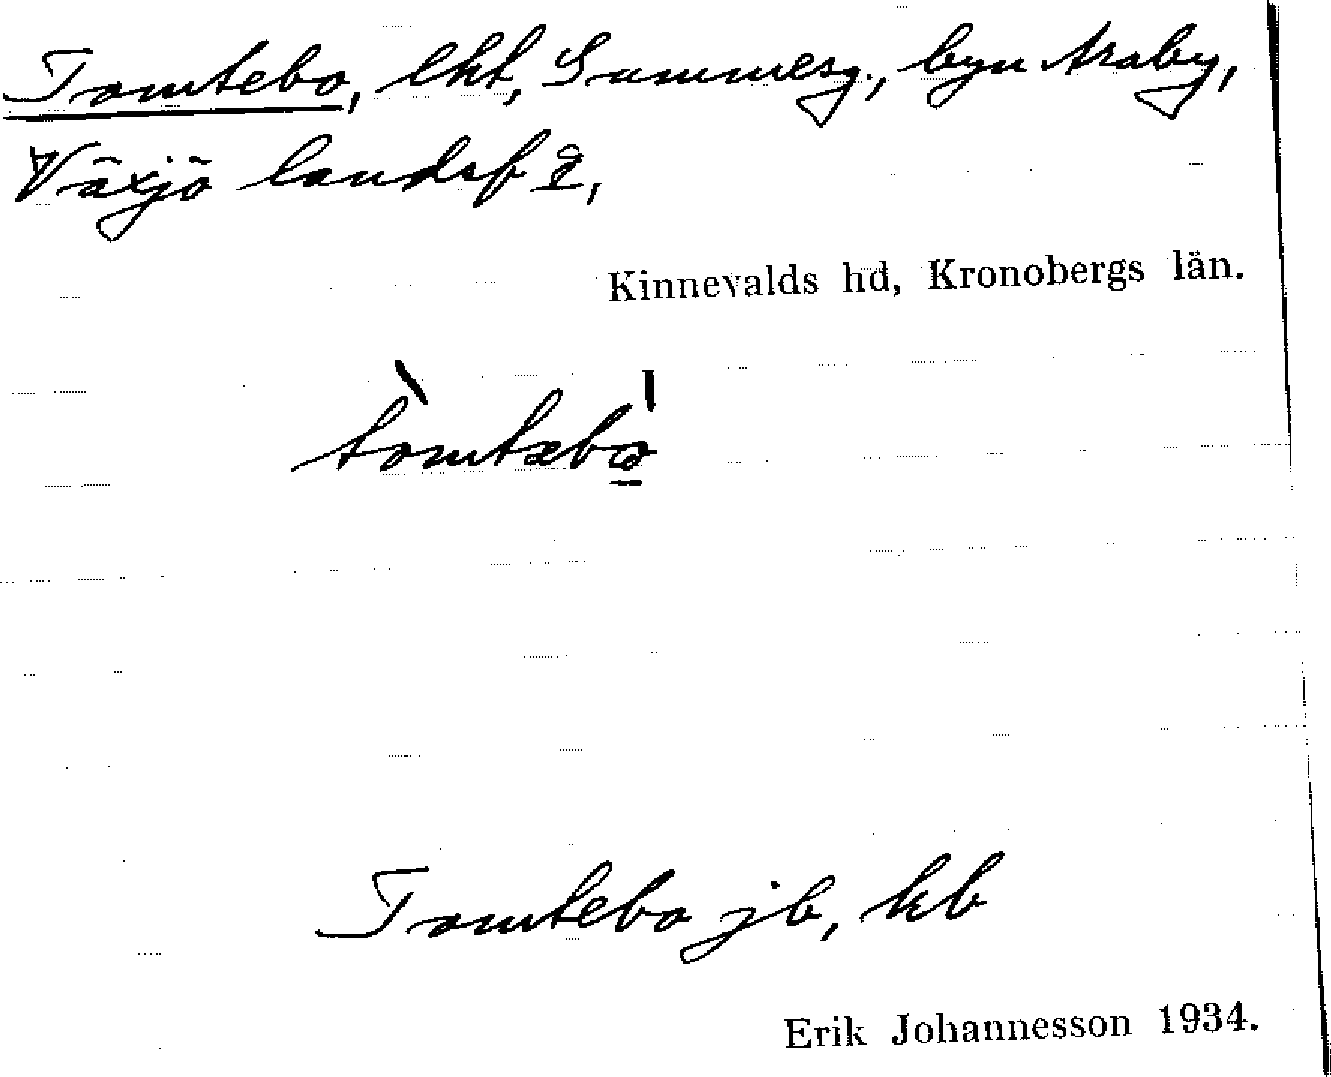 Tomtebo, lht, Sammesg., byn Araby,
Växjö landsf
Kinnevalds hd, Kronobergs län.
tòmtæbo
Tomtebo jb, kb
Erik Johannesson 1934.